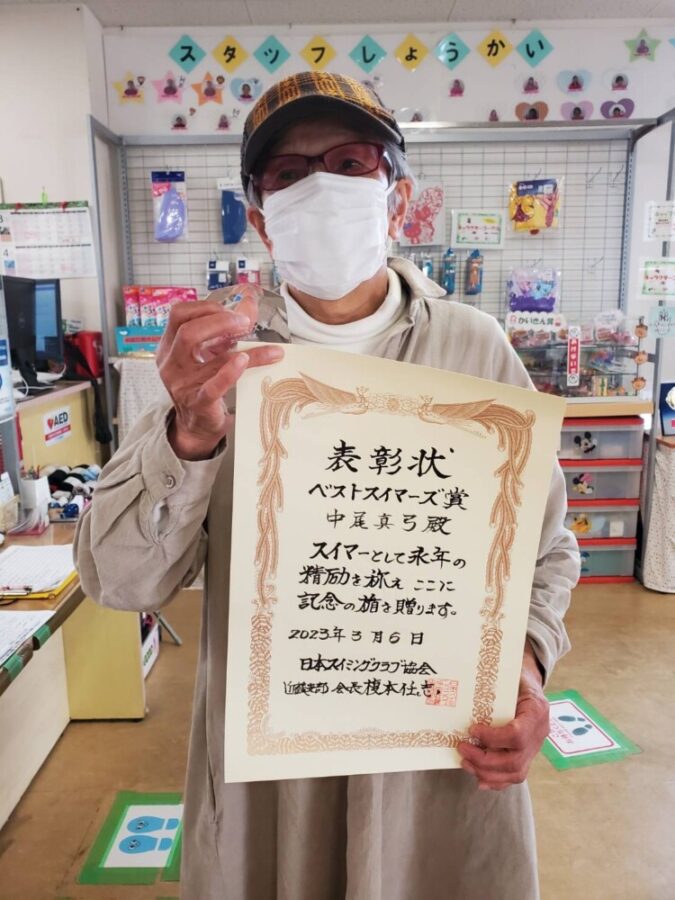 スタッフしょうかい
AED
かいきん賞
表彰状
ベストスイマーズ賞
中尾真弓殿
スイマーとして永年の
精励を称え ここに
記念の楯を贈ります。
2023年3月6日
日本スイミングクラブ協会
近畿支部 会長 榎本任志